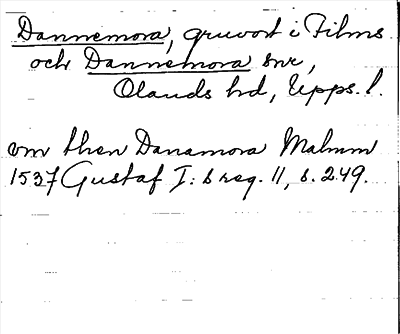 Dannemora, gruvort i Films
och Dannemora snr,
Olands hd, Upps. l.
om then Danamora Malmm
1537 Gustaf I:s reg. 11, s. 249.